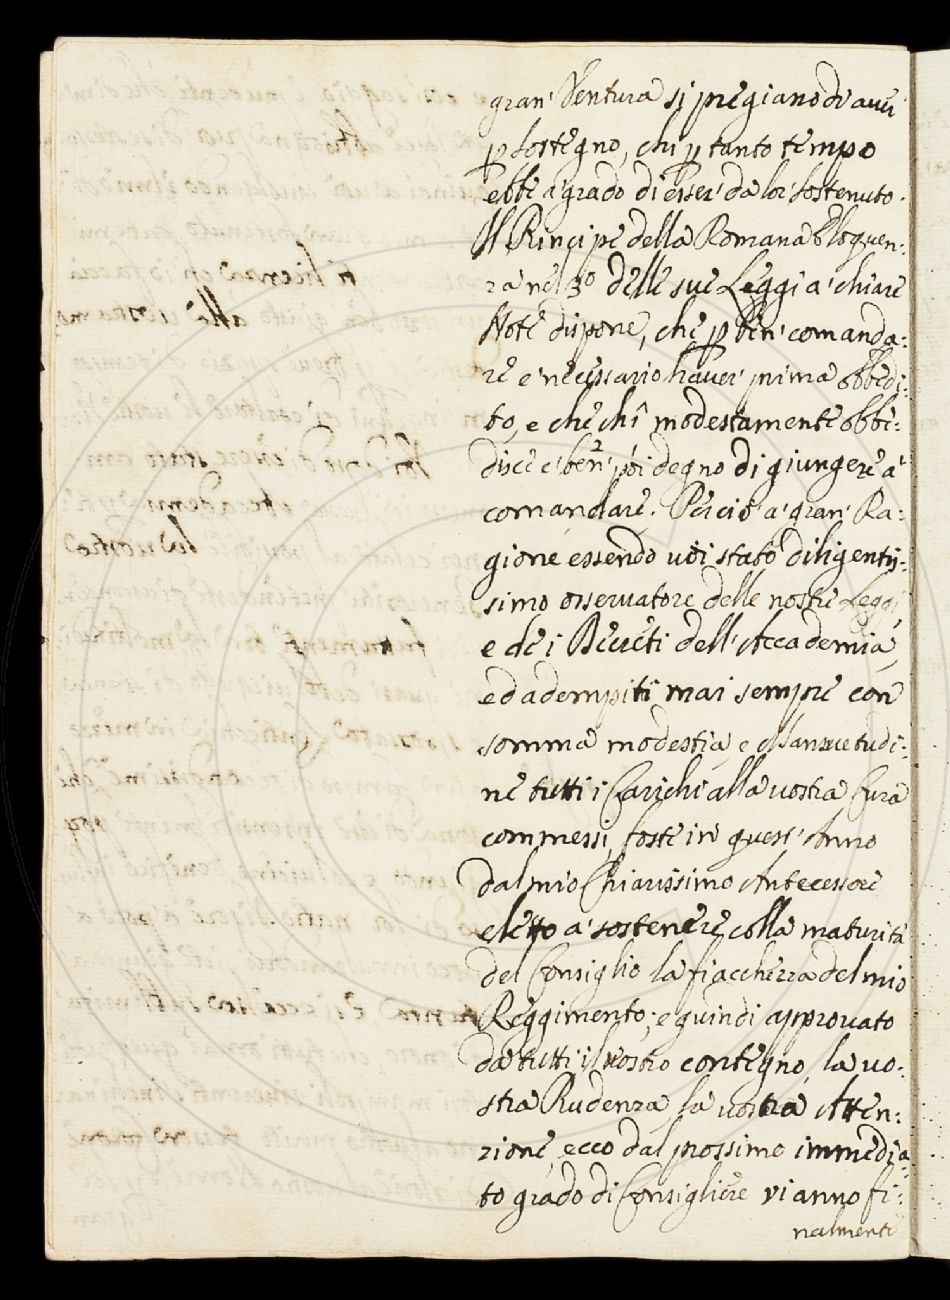 gran' Ventura si pregiano di aver
p sostegno, chi p tanto tempo
ebbe a' grado di esser' da lor' sostenuto.
Il Principe della Romana Eloquen:
za nel 3º delle sue Leggi a' chiare
Note dispone, che p ben' comanda:
re e' necessario haver' prima obbedi:
to, e che chi modestamente obbe:
disce e' ben' poi degno di giungere a'
comandare. Percio' a' gran' Ra:
gione essendo voi stato diligentis:
simo osservatore delle nostre Leggi,
e de i Decreti dell'Accademia,
ed adempiti mai sempre con
somma modestia, e Mansuetudi:
ne tutti i Carichi alla vostra Cura
commessi, foste in quest' Anno
dal mio Chiarissimo Antecessore
eletto a' sostenere colla maturità
del Consiglio la fiacchezza del mio
Reggimento; e quindi approvato
da tutti il vostro contegno, la vo:
stra Prudenza, la vostra Atten:
zione, ecco dal prossimo immedia:
to grado di Consigliere vi anno fi:
nalmente